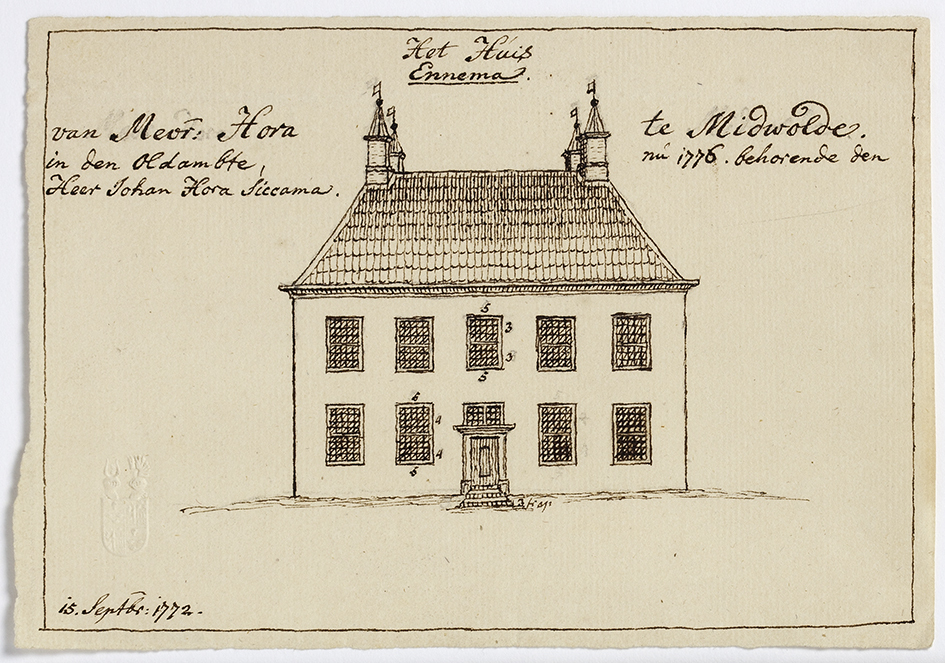 Het Huis
Ennema.
van Mevr: Hora
te Midwolde.
in den Oldambte,
nu 1776. behorende den
Heer Johan Hora Siccama.
5
3
3
5
5
4
4
5
3 trap
15. Septbr: 1772.